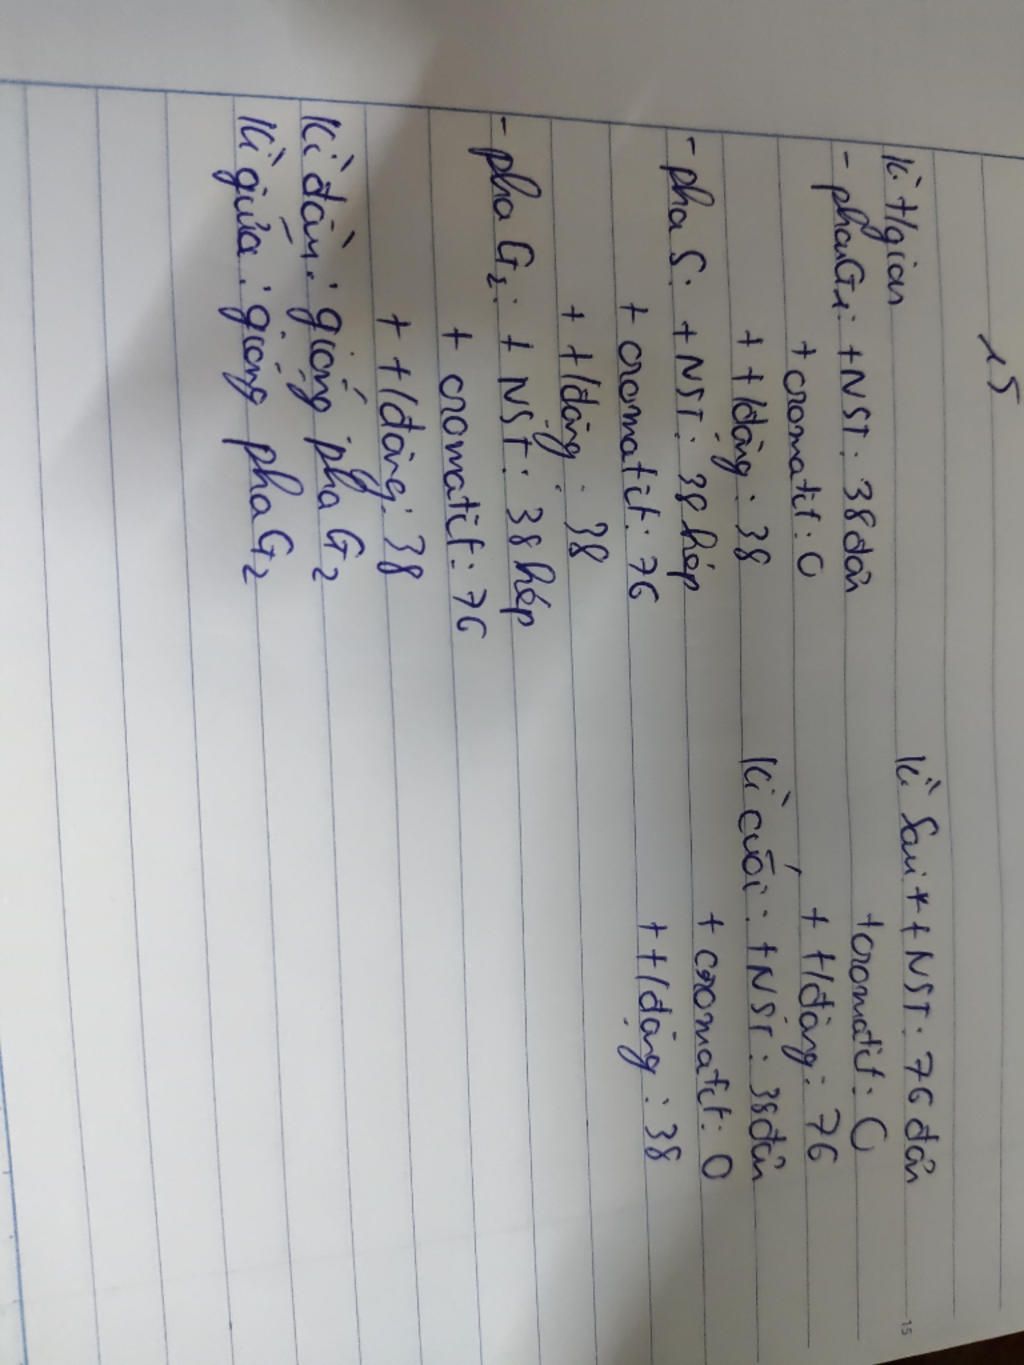 15
Kì t/gian
- pha G1: + NST: 38 đơn
+ cromatit: 0
+ t/động: 38
- pha S: + NST: 38 kép
+ cromatit: 76
+ t/động: 38
- pha G2: + NST: 38 kép
+ cromatit: 76
+ t/động: 38
Kì đầu: giống pha G2
Kì giữa: giống pha G2
Kì sau: + NST: 76 đơn
+ cromatit: 0
+ t/động: 76
Kì cuối: + NST: 38 đơn
+ cromatit: 0
+ t/động: 38
15